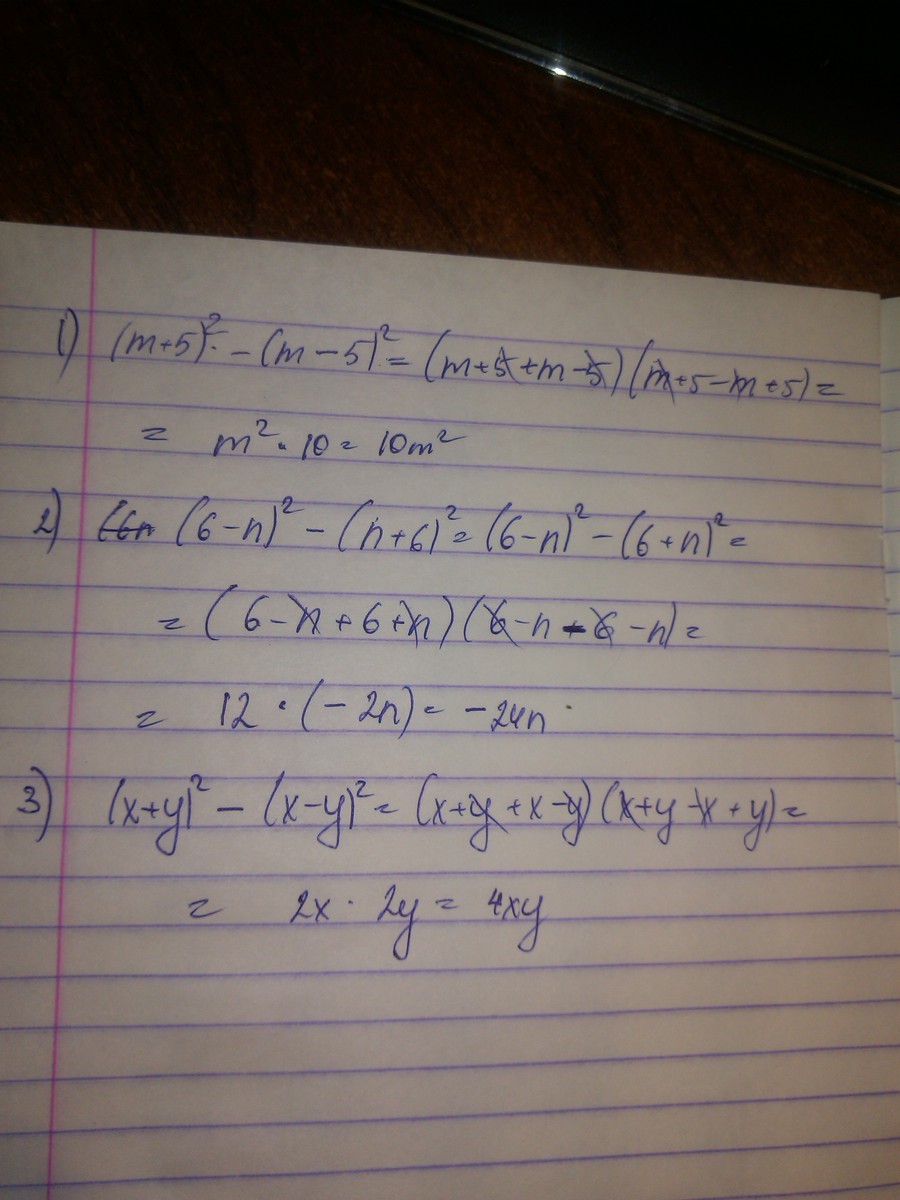 1) (m+5)² - (m-5)² = (m+5+m-5)(m+5-m+5) =
= m² · 10 = 10m²
2) (6-n)² - (n+6)² = (6-n)² - (6+n)² =
= (6-n+6+n)(6-n-6-n) =
= 12 · (-2n) = -24n
3) (x+y)² - (x-y)² = (x+y+x-y)(x+y-x+y) =
= 2x · 2y = 4xy